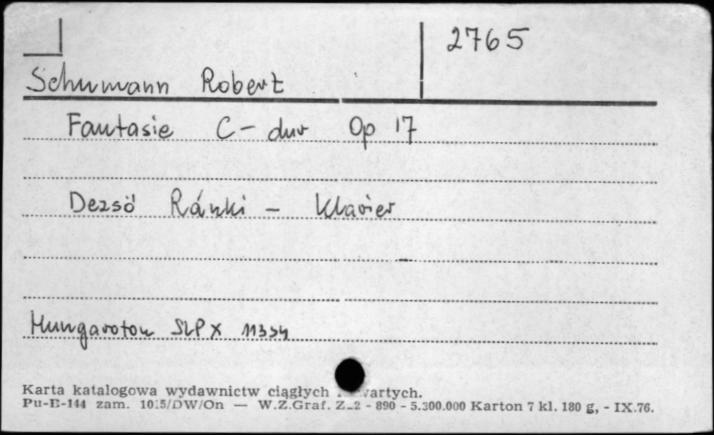 2765
Schumann Robert
Fantasie C-dur Op 17
Dezső Ránki - Klavier
Hungaroton SLPX
Karta katalogowa wydawnictw ciągłych
Pu-E-144 zam. /DW/On — W.Z.Graf. Z-2 - 890 - 5.300.000 Karton 7 kl. 180 g, - IX.76.